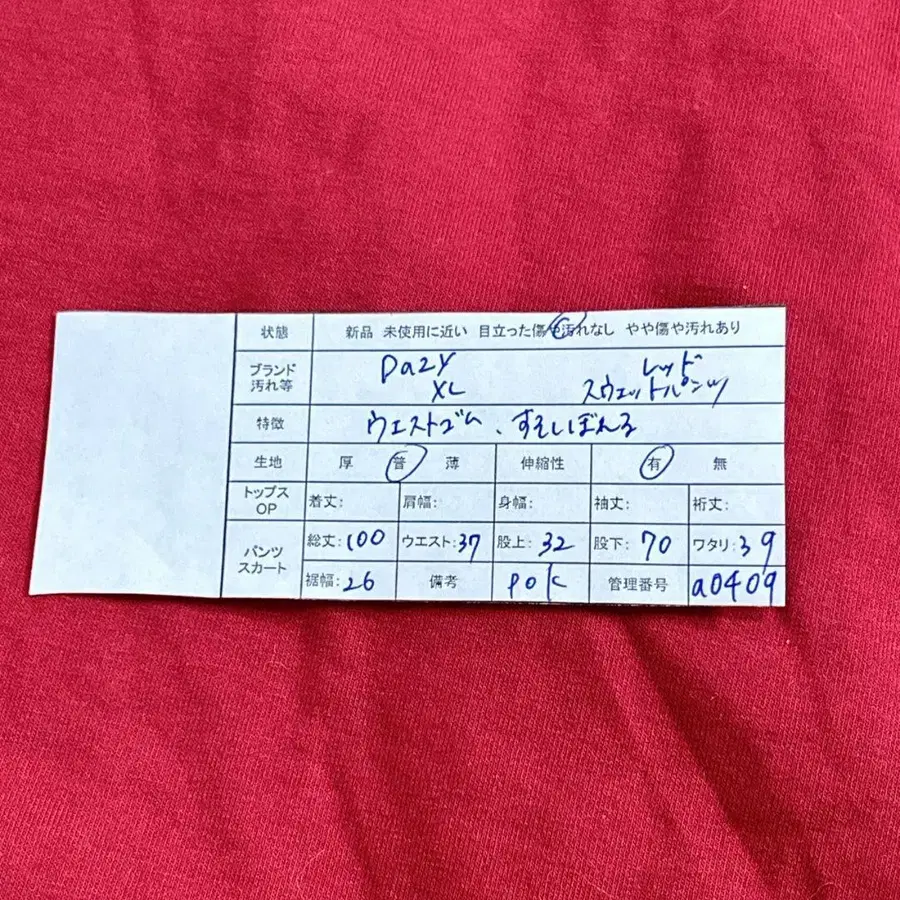 状態 新品 未使用に近い 目立った傷や汚れなし やや傷や汚れあり
ブランド 汚れ等 Dazy XL レッド スウェットパンツ
特徴 ウエストゴム、すそしぼれる
生地 厚 普 薄 伸縮性 有 無
トップス OP 着丈: 肩幅: 身幅: 袖丈: 裄丈:
パンツ スカート 総丈:100 ウエスト:37 股上:32 股下:70 ワタリ:39
裾幅:26 備考 pok 管理番号 a0409